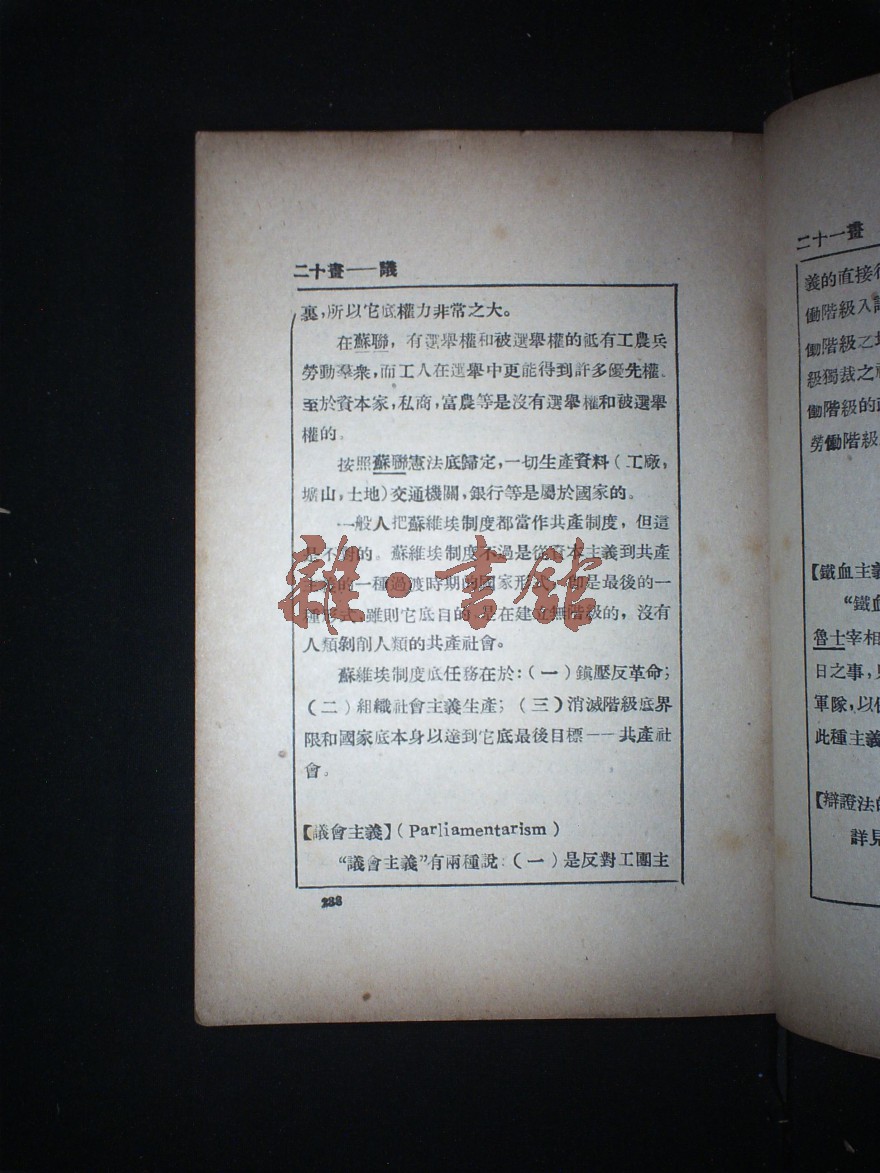 二十畫——議
裏，所以它底權力非常之大。
在蘇聯，有選舉權和被選舉權的祇有工農兵
勞動羣衆，而工人在選舉中更能得到許多優先權。
至於資本家，私商，富農等是沒有選舉權和被選舉
權的。
按照蘇聯憲法底歸定，一切生產資料（工廠，
壙山，土地）交通機關，銀行等是屬於國家的。
一般人把蘇維埃制度都當作共產制度，但這
是不對的。蘇維埃制度不過是從資本主義到共產
主義的一種過渡時期的國家形式，卽是最後的一
種形式，雖則它底目的，是在建立無階級的，沒有
人類剝削人類的共產社會。
蘇維埃制度底任務在於：（一）鎭壓反革命；
（二）組織社會主義生產；（三）消滅階級底界
限和國家底本身以達到它底最後目標——共產社
會。
【議會主義】（Parliamentarism）
“議會主義”有兩種說：（一）是反對工團主
288
雜·書館
二十一畫
義的直接
働階級入
働階級之
級獨裁之
働階級的
勞働階級
【鐵血主義
“鐵血
魯士宰相
日之事，
軍隊，以
此種主義
【辯證法的
詳見